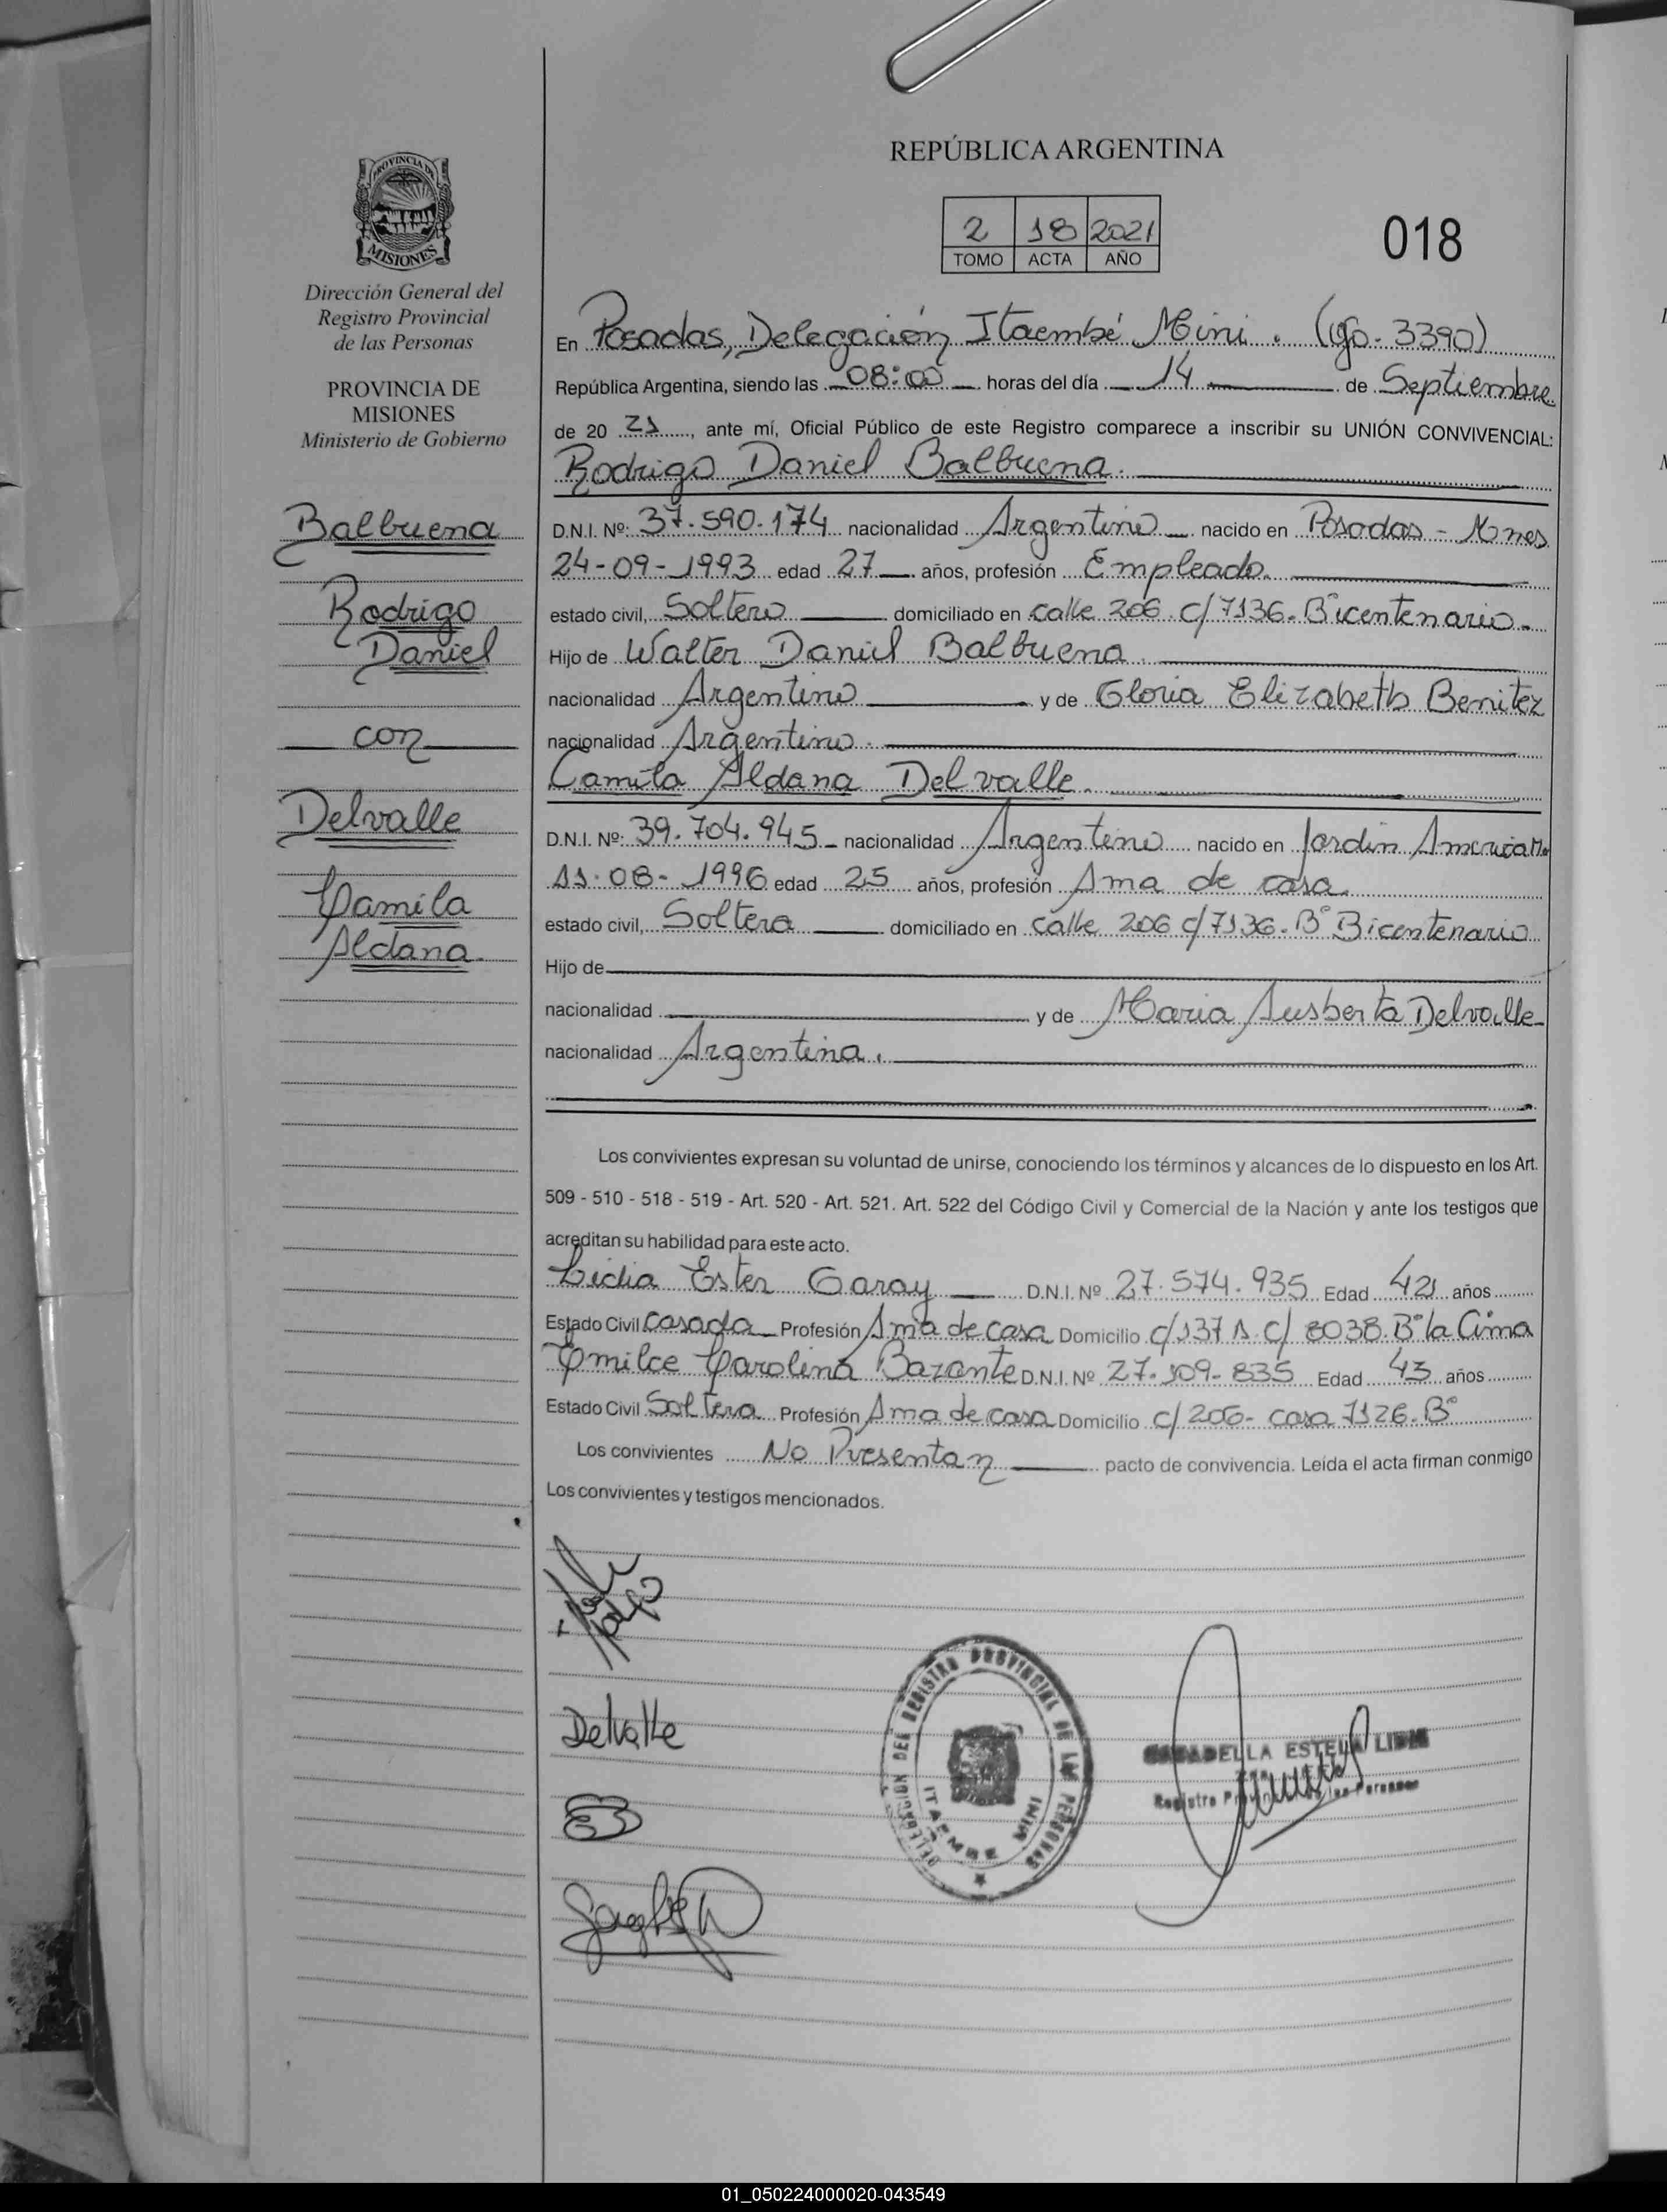 REPÚBLICA ARGENTINA
2 18 2021
TOMO ACTA AÑO
018
PROVINCIA DE
MISIONES
Dirección General del
Registro Provincial
de las Personas
PROVINCIA DE
MISIONES
Ministerio de Gobierno
Balbuena
Rodrigo
Daniel
con
Delvalle
Camila
Aldana.
En Posadas, Delegación Itaembé Mini. (Cgo. 3390)
República Argentina, siendo las 08:00 horas del día 14 de Septiembre
de 20 21, ante mí, Oficial Público de este Registro comparece a inscribir su UNIÓN CONVIVENCIAL:
Rodrigo Daniel Balbuena.
D.N.I. Nº: 37.590.174 nacionalidad Argentino nacido en Posadas - Mnes
24-09-1993 edad 27 años, profesión Empleado.
estado civil, Soltero domiciliado en calle 206 c/7136. Bicentenario.
Hijo de Walter Daniel Balbuena.
nacionalidad Argentino y de Gloria Elizabeth Benitez
nacionalidad Argentino.
Camila Aldana Delvalle.
D.N.I. Nº: 39.704.945 nacionalidad Argentino nacido en Jardin America
11-08-1996 edad 25 años, profesión Ama de casa.
estado civil, Soltera domiciliado en calle 206 c/7136. B° Bicentenario
Hijo de
nacionalidad y de Maria Delvalle
nacionalidad Argentina.
Los convivientes expresan su voluntad de unirse, conociendo los términos y alcances de lo dispuesto en los Art.
509 - 510 - 518 - 519 - Art. 520 - Art. 521. Art. 522 del Código Civil y Comercial de la Nación y ante los testigos que
acreditan su habilidad para este acto.
Lidia Ester Garay D.N.I. Nº 27.574.935 Edad 42 años
Estado Civil Casada Profesión Ama de casa Domicilio c/137 A. c/ 8038. B° la Cima
Emilce Carolina Bazante D.N.I. Nº 27.109.835 Edad 43 años
Estado Civil Soltera Profesión Ama de casa Domicilio c/206- casa 7126. B°
Los convivientes No Presentan pacto de convivencia. Leída el acta firman conmigo
Los convivientes y testigos mencionados.
Delvalle
DELEGACION DEL REGISTRO PROVINCIAL DE LAS PERSONAS
ITAEMBE MINI
ESTELA LIDIA
Registro Provincial de las Personas
01_050224000020-043549